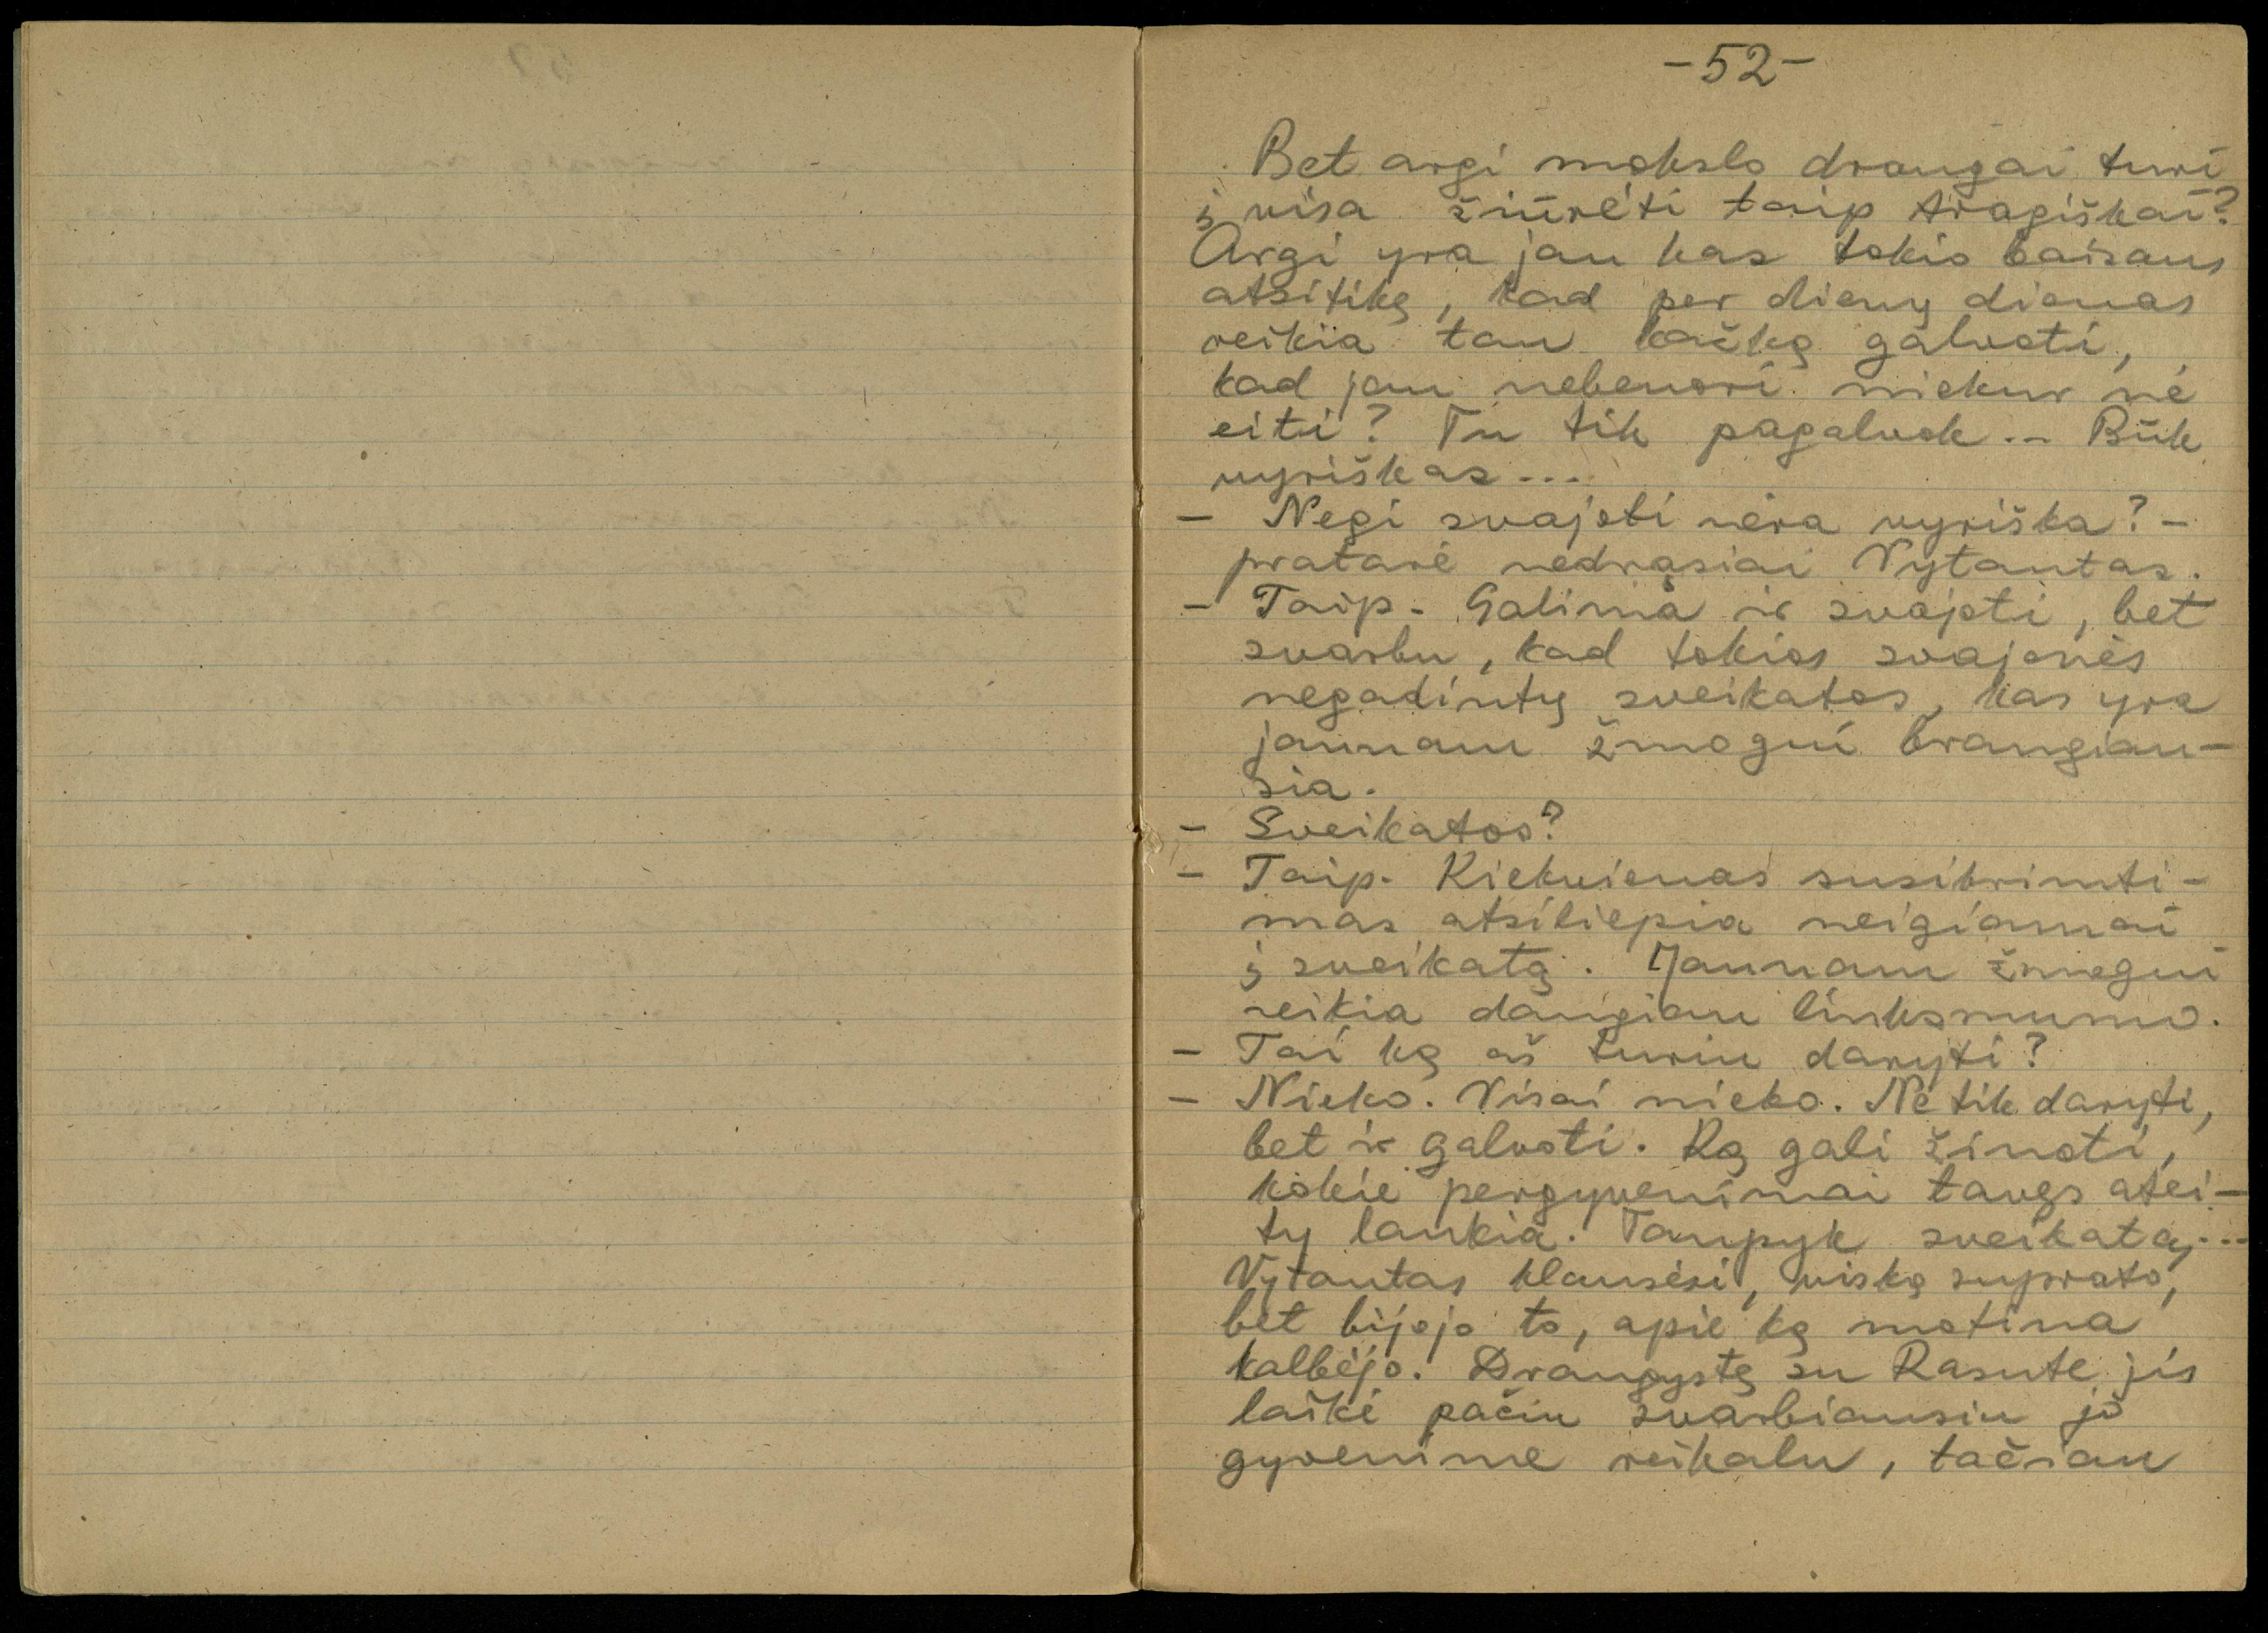 -52-
Bet argi mokslo draugai turi
į visa žiūrėti taip tragiškai?
Argi yra jau kas tokio baisaus
atsitikę, kad per dienų dienas
reikia tau kažką galvoti,
kad jau nebenori niekur nė
eiti? Tu tik pagalvok... Būk
vyriškas...
- Negi svajoti nėra vyriška? -
pratarė nedrąsiai Vytautas.
- Taip. Galima ir svajoti, bet
svarbu, kad tokios svajonės
negadintų sveikatos, kas yra
jaunam žmogui brangiau-
sia.
- Sveikatos?
- Taip. Kiekvienas susikrimti-
mas atsiliepia neigiamai
į sveikatą. Jaunam žmogui
reikia daugiau linksmumo.
- Tai ką aš turiu daryti?
- Nieko. Visai nieko. Ne tik daryti,
bet ir galvoti. Ką gali žinoti,
kokie pergyvenimai tavęs atei-
ty laukia. Taupyk sveikatą...
Vytautas klausėsi, viską suprato,
bet bijojo to, apie ką motina
kalbėjo. Draugystę su Rasute jis
laikė pačiu svarbiausiu jo
gyvenime reikalu, tačiau